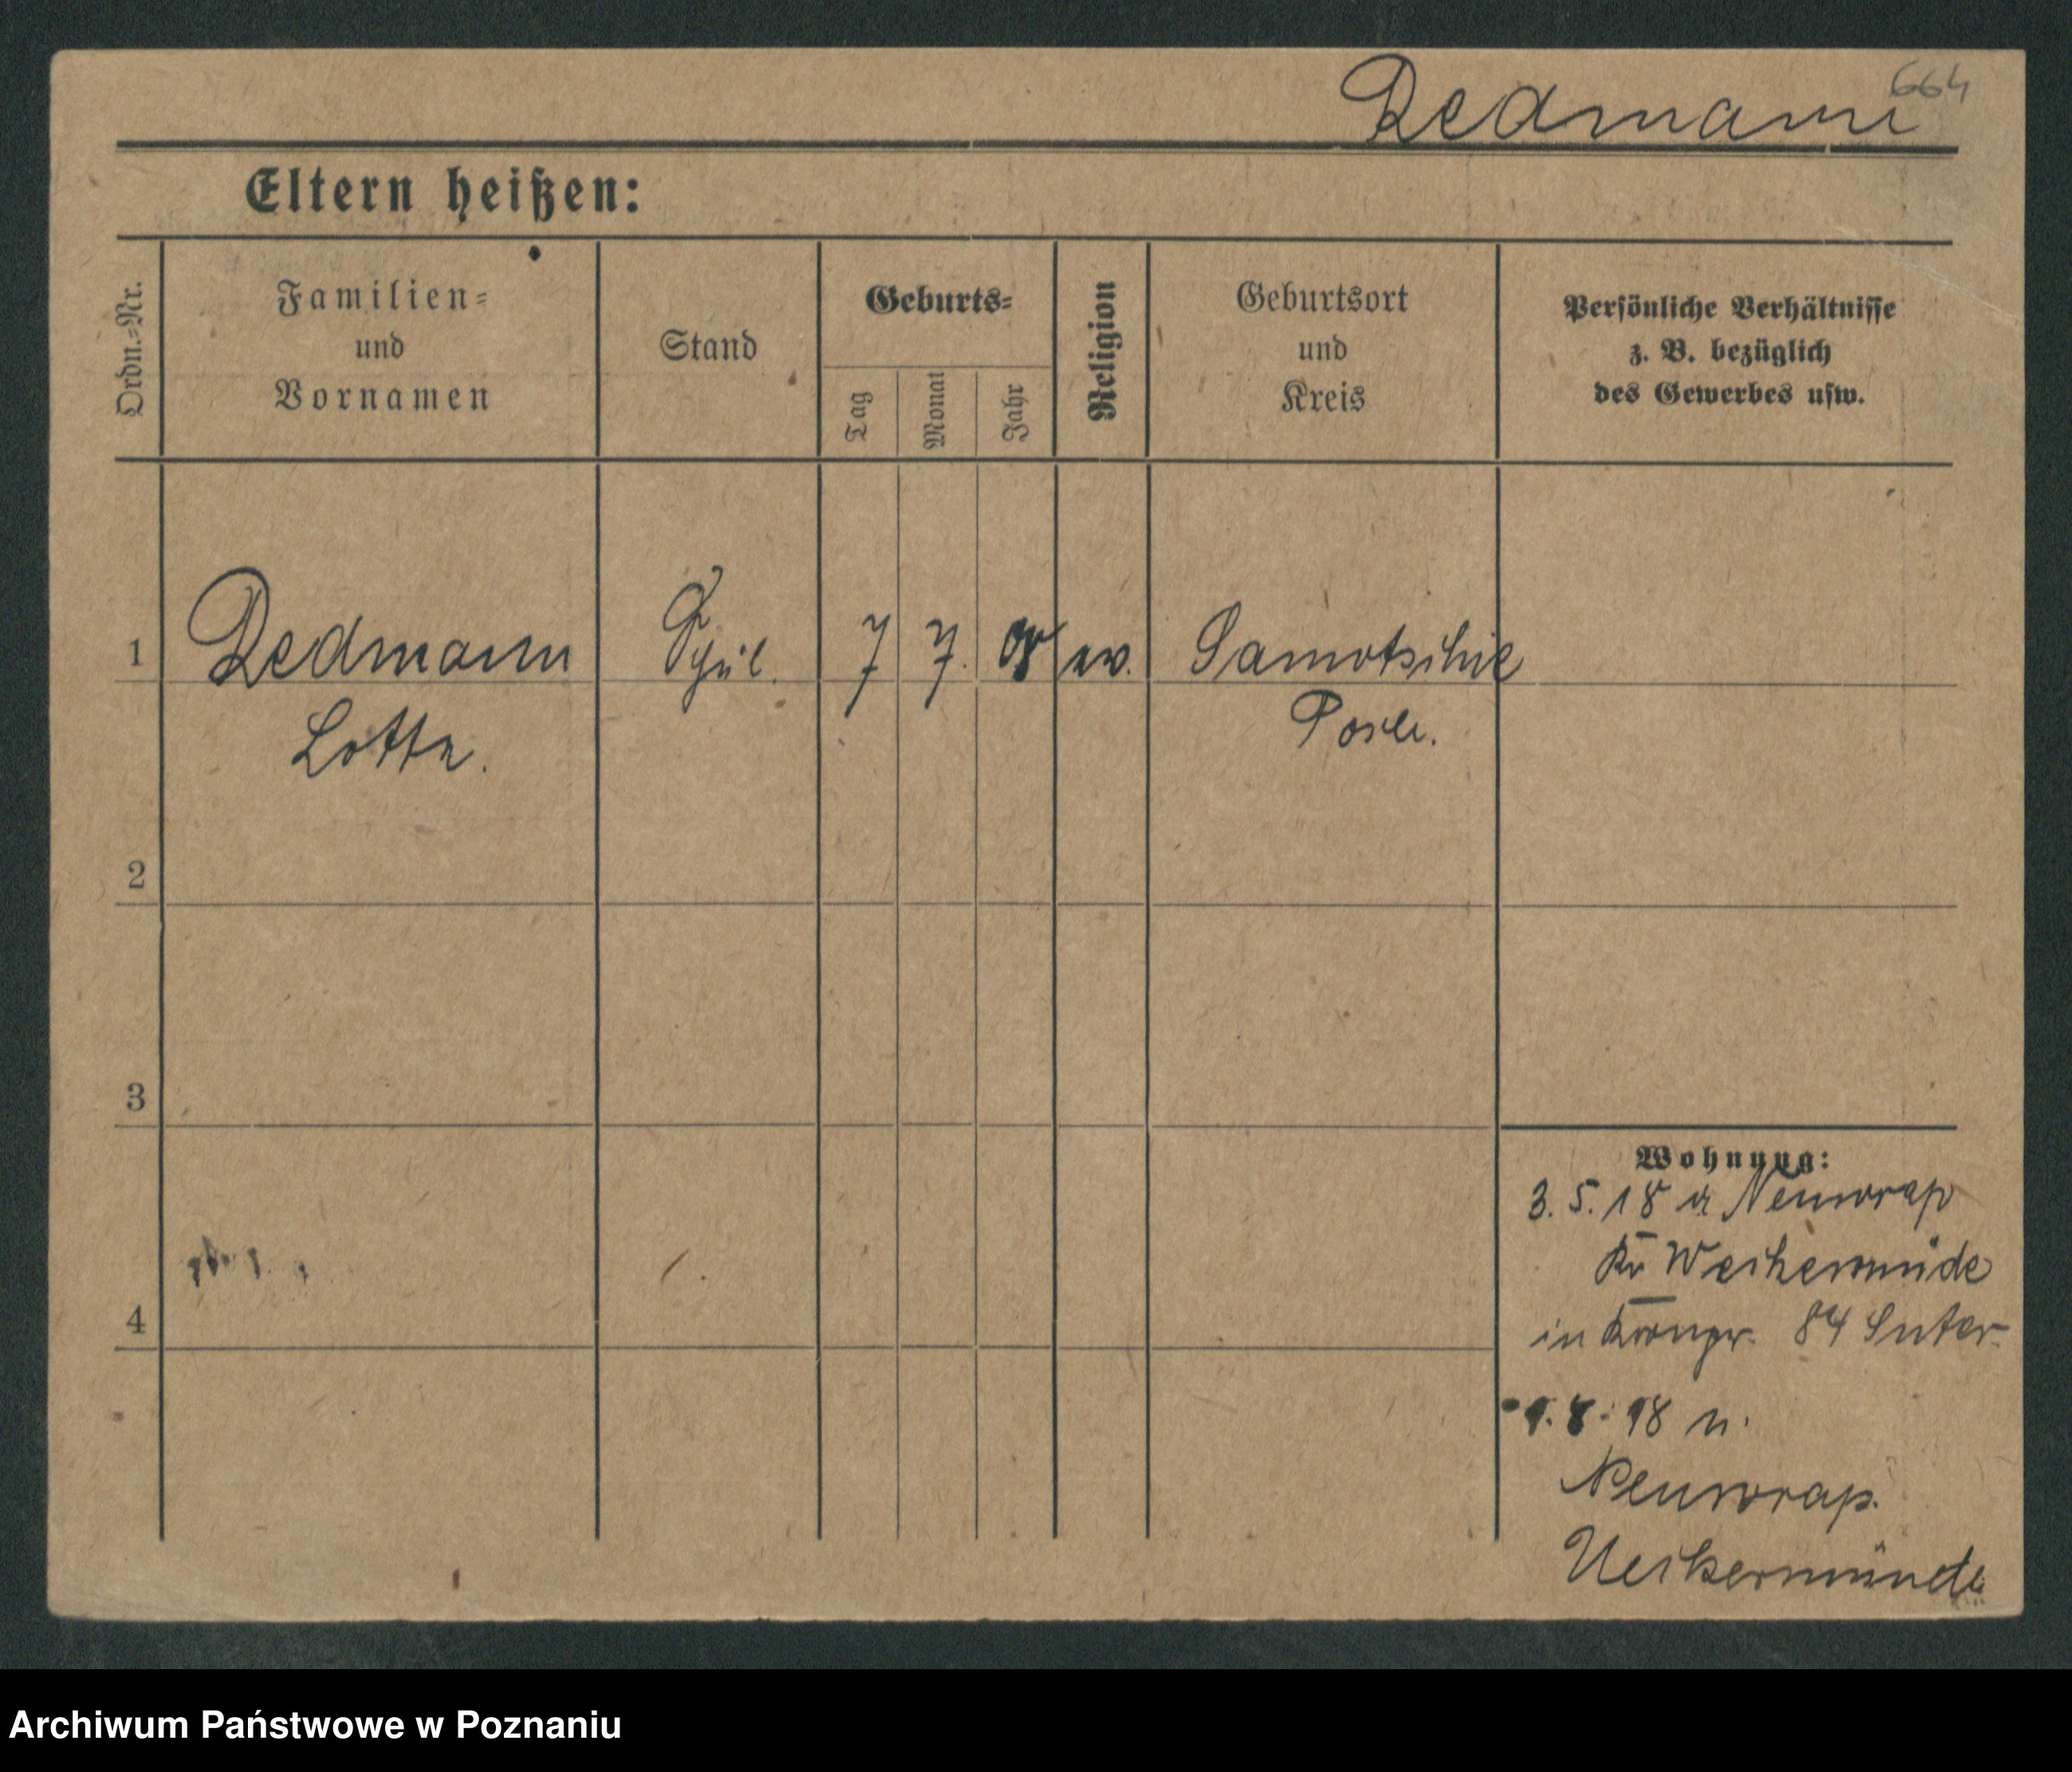 664
Redmann
Eltern heißen:
Ordn.=Nr.
Familien=
und
Vornamen
Stand
Geburts=
Tag
Monat
Jahr
Religion
Geburtsort
und
Kreis
Persönliche Verhältnisse
z. B. bezüglich
des Gewerbes usw.
1
Redmann
Lotte.
7
7.
ev.
Samotschie
2
3
4
Wohnung:
3. 5. 18 a Neuwrap
Kr
in 84
18 n.
Neuwrap.
Ueckermünde
Archiwum Państwowe w Poznaniu